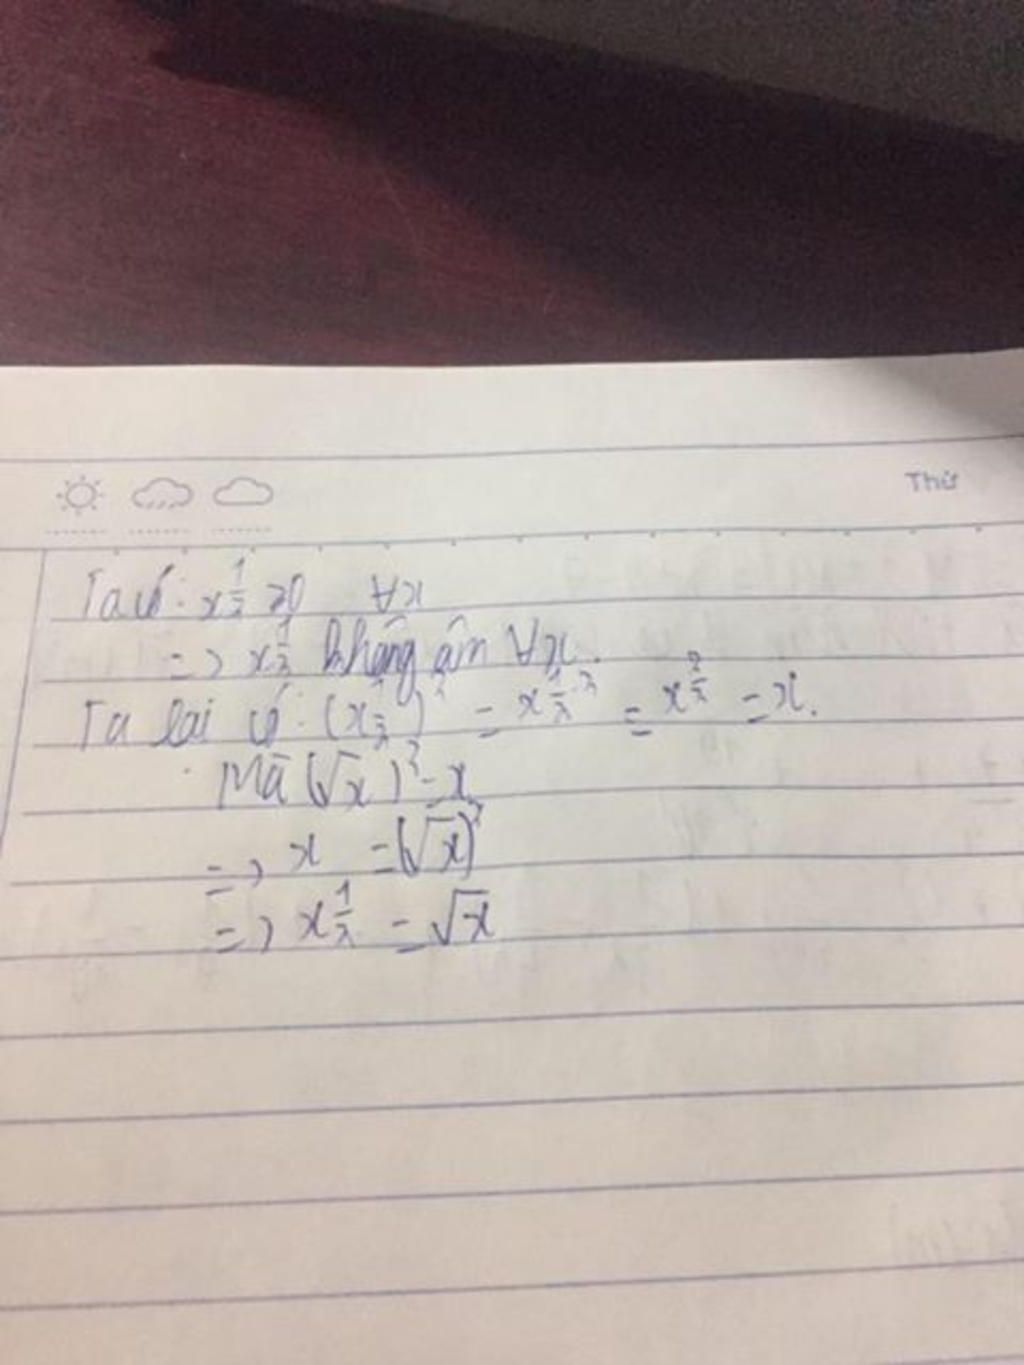 Thứ
Ta có: x^{\frac{1}{2}} ≥0 ∀x
=> x^{\frac{1}{2}} không âm ∀x.
Ta lại có: (x^{\frac{1}{2}})^2 = x^{\frac{1}{2}.2} = x^{\frac{2}{2}} = x.
Mà (√x)^2 = x
=> x = (√x)^2
=> x^{\frac{1}{2}} = √x